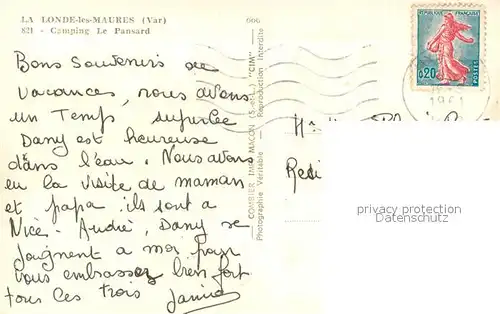 LA LONDE-les-MAURES (Var)
821 - Camping Le Pansard
Bons Souvenirs de
vacances, nous avons
un Temps superbe
Dany est heureuse
dans l'eau. Nous avons
eu la visite de maman
et papa ils sont a
Nice. André, Dany se
joignent a moi pour
vous embrasser bien fort
tous les trois Janine
COMBIER IMP. MACON (S.-et-L.) "CIM"
Photographie Véritable — Reproduction Interdite
REPUBLIQUE FRANÇAISE
0,20
POSTES
1961
Resi
privacy protection
Datenschutz